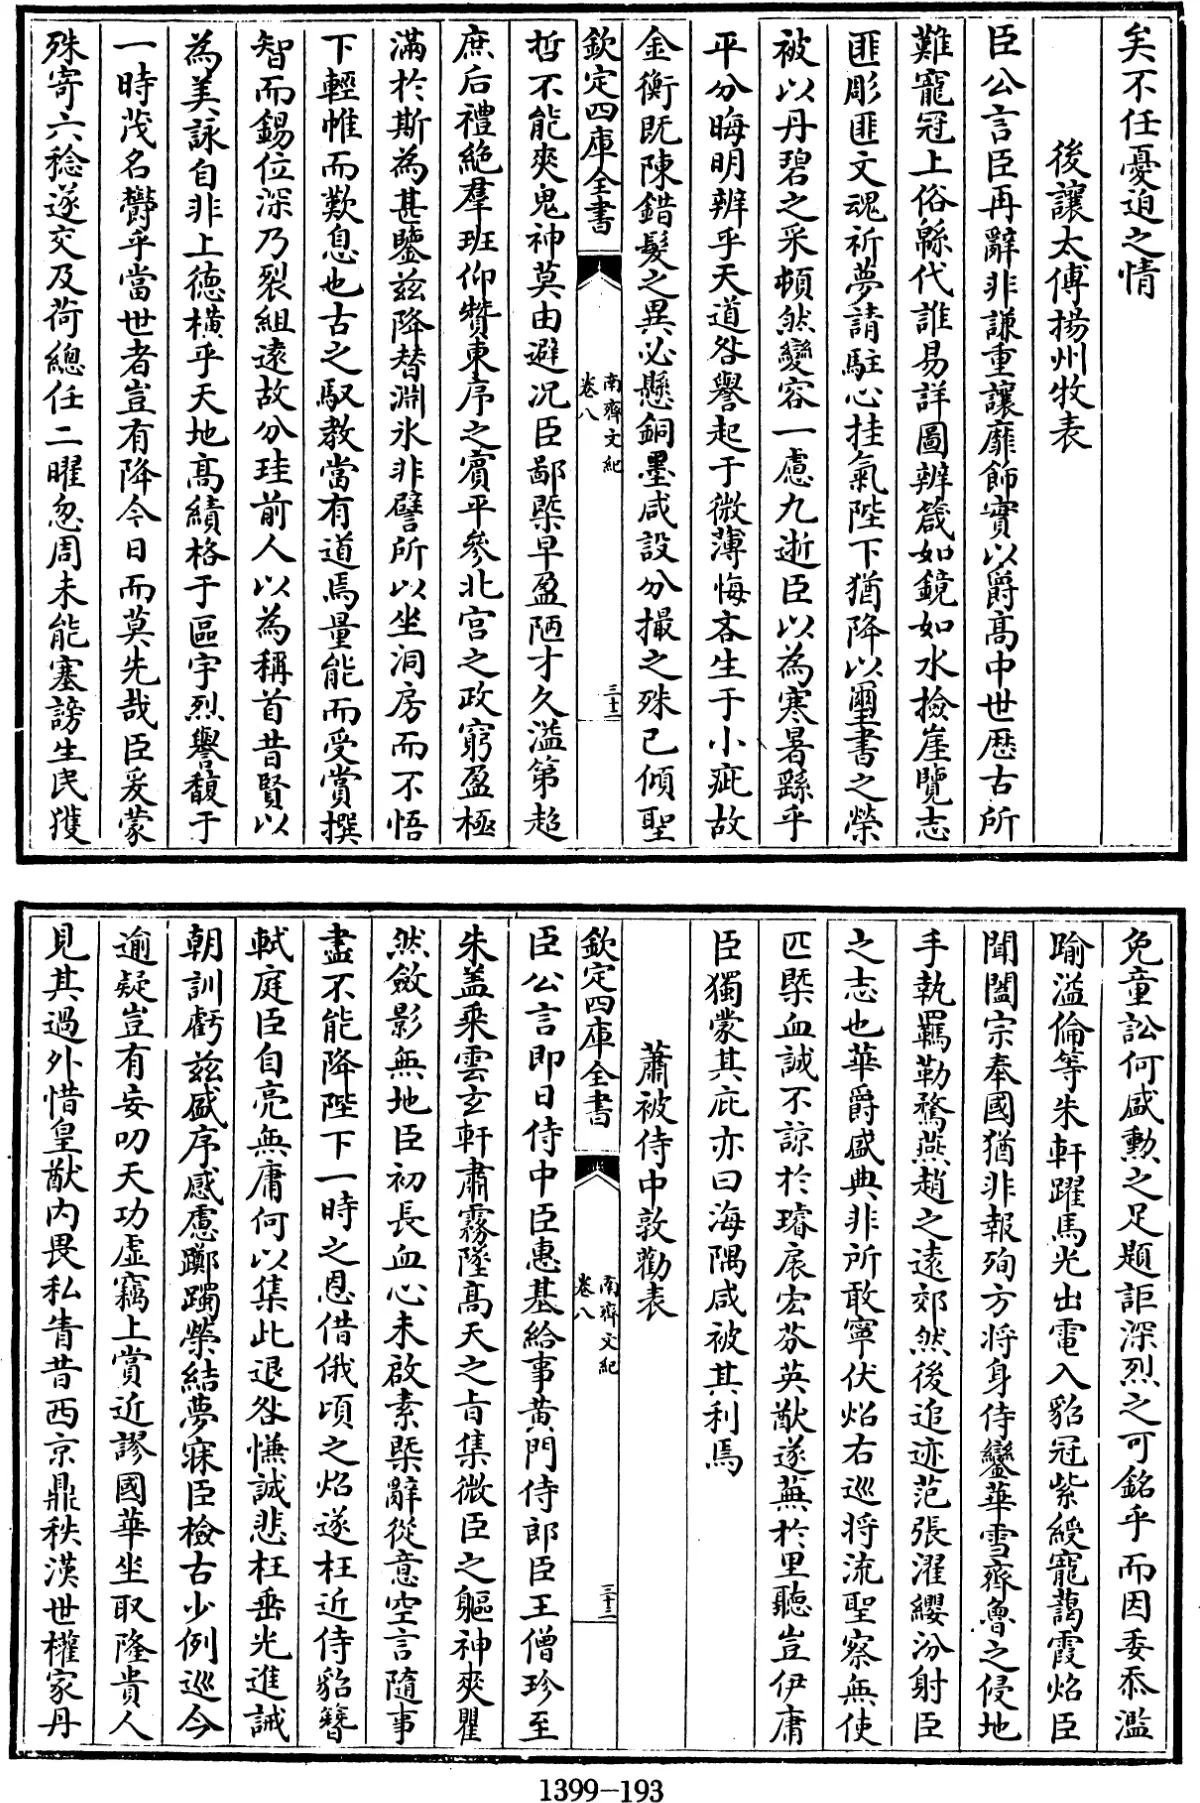 矣不任憂迫之情
後讓太傅揚州牧表
臣公言臣再辭非謙重讓靡飾實以爵高中世歴古所
難寵冠上俗緜代誰易詳圖辨箴如鏡如水撿崖覽志
匪彫匪文魂祈夢請駐心挂氣陛下猶降以璽書之榮
被以丹碧之采頓然變容一慮九逝臣以為寒暑繇乎
平分晦明辨乎天道咎譽起于微薄悔吝生于小疵故
金衡既陳錯髮之異必懸銅墨咸設分撮之殊已傾聖
欽定四庫全書
南齊文紀
卷八
三十二
哲不能爽鬼神莫由避况臣鄙槩早盈陋才久溢第超
庶后禮絶羣班仰贊東序之賓平參北宫之政窮盈極
滿於斯為甚鑒兹降替淵氷非譬所以坐洞房而不悟
下輕帷而歎息也古之馭教當有道焉量能而受賞撰
智而錫位深乃裂組遠故分珪前人以為稱首昔賢以
為美詠自非上徳横乎天地高績格于區宇烈譽馥于
一時茂名欝乎當世者豈有降今日而莫先哉臣爰蒙
殊寄六稔遂交及荷總任二曜忽周未能塞謗生民獲
免童訟何盛勲之足題詎深烈之可銘乎而因委忝濫
踰溢倫等朱軒躍馬光出電入貂冠紫綬寵藹霞焰臣
聞闔宗奉國猶非報殉方將身侍鑾華雪齊魯之侵地
手執羈勒騖燕趙之遠郊然後追迹范張濯纓汾射臣
之志也華爵盛典非所敢寧伏焰右巡將流聖察無使
匹槩血誠不諒於璿扆宏芬英猷遂蕪於里聽豈伊庸
臣獨蒙其庇亦曰海隅咸被其利焉
蕭被侍中敦勸表
欽定四庫全書
南齊文紀
卷八
三十三
臣公言即日侍中臣惠基給事黄門侍郎臣王僧珍至
朱盖乘雲玄軒肅霧墜高天之旨集微臣之軀神爽瞿
然斂影無地臣初長血心未啟素槩辭從意空言隨事
盡不能降陛下一時之恩借俄頃之焰遂枉近侍貂簪
軾庭臣自亮無庸何以集此退咎慊誠悲枉垂光進誡
朝訓虧兹盛序感慮躑躅榮結夢寐臣檢古少例巡今
逾疑豈有妄叨天功虛竊上賞近謬國華坐取隆貴人
見其過外惜皇猷内畏私眚昔西京鼎秩漢世權家丹
1399-193